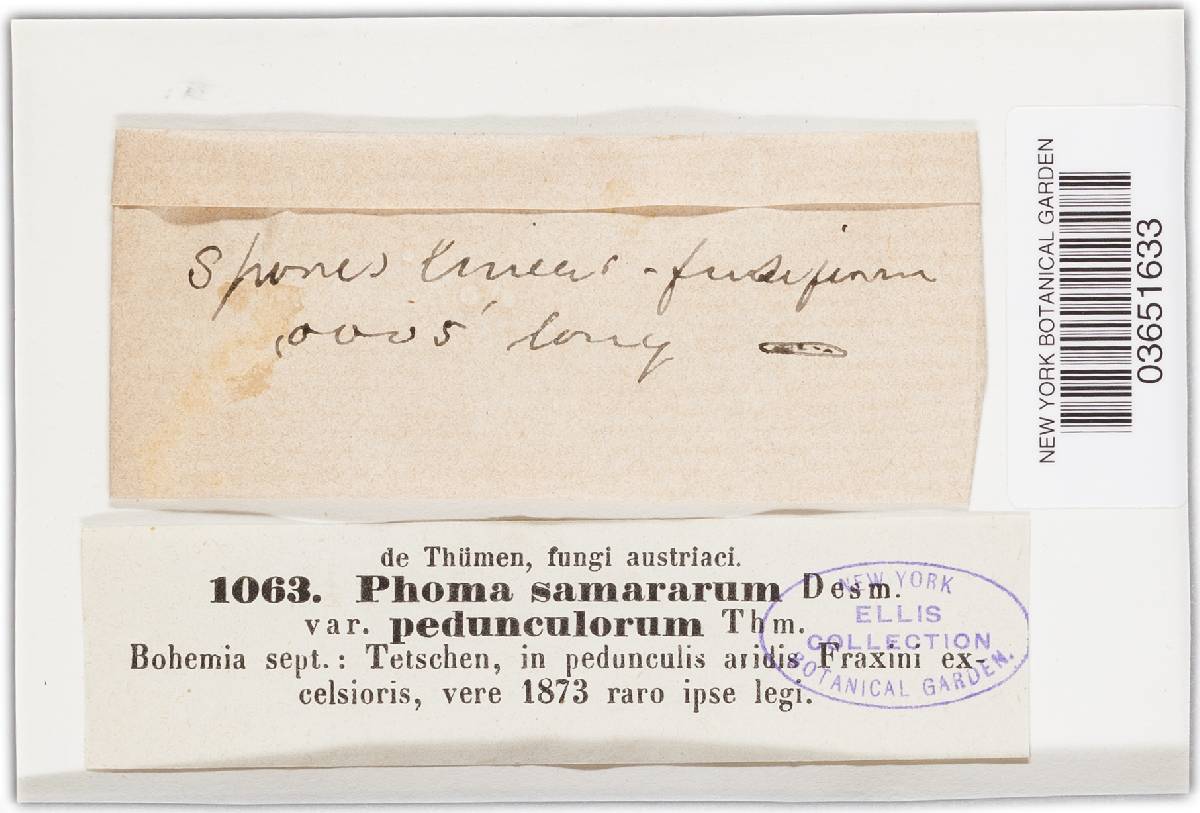 Spores linear - fusiform
,0005' long
de Thümen, fungi austriaci.
1063. Phoma samararum Desm.
var. pedunculorum Thm.
Bohemia sept.: Tetschen, in pedunculis aridis Fraxini ex-
celsioris, vere 1873 raro ipse legi.
NEW YORK
ELLIS
COLLECTION
BOTANICAL GARDEN.
NEW YORK BOTANICAL GARDEN
03651633